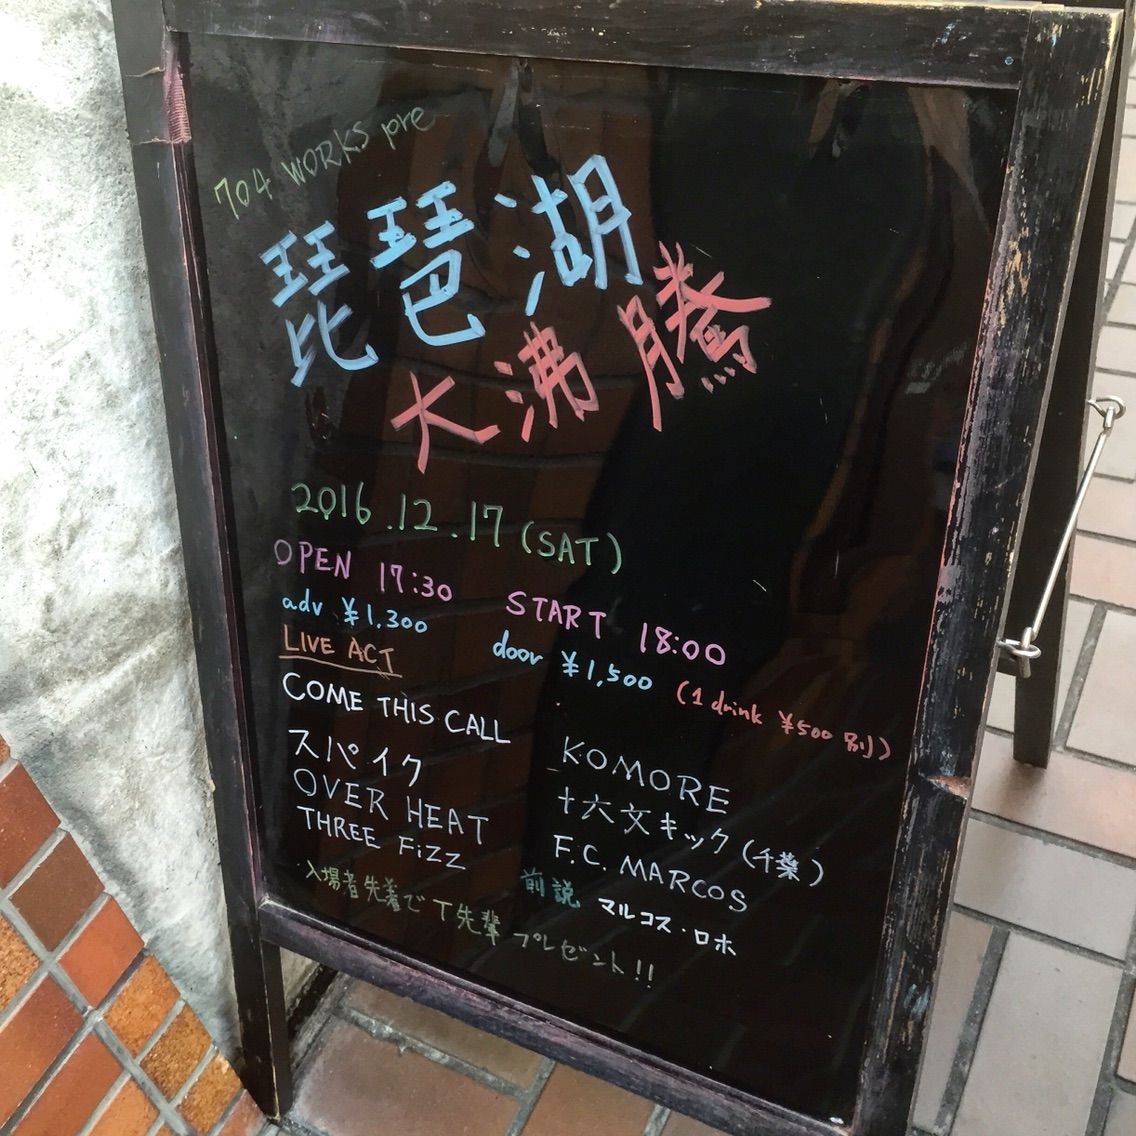 704 WORKS pre
琵琶湖
大沸騰
2016.12.17(SAT)
OPEN 17:30 START 18:00
adv ¥1,300 door ¥1,500 (1 drink ¥500 別)
LIVE ACT
COME THIS CALL
スパイク
OVER HEAT
THREE FiZZ
KOMORE
十六文キック(千葉)
F.C. MARCOS
前説 マルコス・ロホ
入場者先着でT先輩プレゼント!!